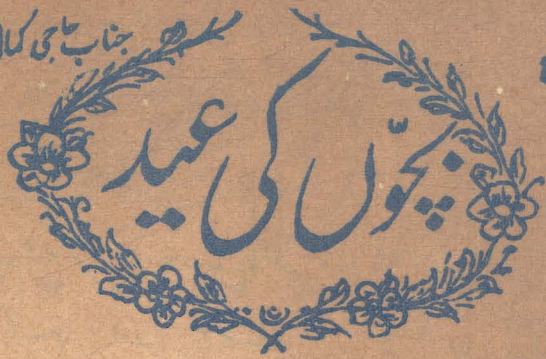 جناب حاجی
بچّوں کی عید